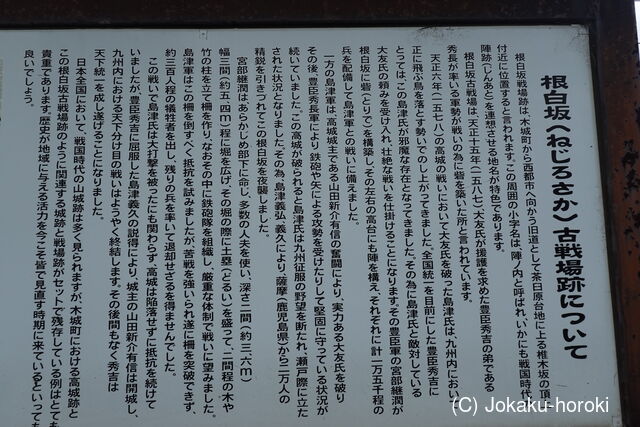 根白坂(ねじろさか)古戦場跡について
根白坂戦場跡は、木城町から西都市へ向かう旧道として茶臼原台地に上る椎木坂の頂
付近に位置すると言われます。この周囲の小字名は、陣ノ内と呼ばれ、いかにも戦国時代
陣跡(じんあと)を連想させる地名が特色であります。
根白坂古戦場は、天正十五年(一五八七)大友氏が援護を求めた豊臣秀吉の弟である
秀長が率いる軍勢が戦いの為に砦を築いた所と言われています。
天正六年(一五七八)の高城の戦いにおいて大友氏を破った島津氏は、九州内におい
正に飛ぶ鳥を落とす勢いでのし上がってきました。全国統一を目前にした豊臣秀吉に
とっては、この島津氏が邪魔な存在となってきました。その為に島津氏と敵対している
大友氏の頼みを受け入れ、壮絶な戦いを仕掛けることになります。その豊臣軍の宮部継潤が
根白坂に砦(とりで)を構築し、その左右の高台にも陣を構え、それぞれに計一万五千程の
兵を配備して島津軍との戦いに備えました。
一方の島津軍は、高城城主である山田新介有信の奮闘により、実力ある大友氏を破り
その後、豊臣秀長軍により、鉄砲や矢による攻勢を受けたりして堅固に守っている状況が
続いていました。この高城が破られると島津氏は九州征服の野望を断たれ、瀬戸際に立た
された状況となりました。その為、島津義弘、義久により、薩摩(鹿児島県)から二万人の
精鋭を引きつれてこの根白坂を夜襲しました。
宮部継潤はあらかじめ部下に命じ、多数の人夫を使い、深さ二間(約三・六m)
幅三間(約五・四m)程に堀を広げ、その堀の際に土塁(どるい)を盛って、二間程の木や
竹の柱を立て柵を作りなおその中に鉄砲隊を組織し、厳重な体制で戦いに望みました。
島津軍はこの柵を倒すべく抵抗を試みましたが、苦戦を強いられ遂に柵を突破できず、
約三百人程の犠牲者を出し、残りの兵を率いて退却せざるを得ませんでした。
この戦いで島津氏は大打撃を被ったにも関わらず、高城は陥落せずに抵抗を続けて
いましたが、豊臣秀吉に屈服した島津義久の説得により、城主の山田新介有信は開城し、
九州内における天下分け目の戦いはようやく終結します。その後間もなく秀吉は
天下統一を成し遂げることになりました。
日本全国において、戦国時代の山城跡は多く見られますが、木城町における高城跡と
この根白坂古戦場跡のように関連する城跡と戦場跡がセットで残存している例はとても
貴重であります。歴史が地域に与える活力を今こそ皆で見直す時期に来ているといっても
良いでしょう。
(C) Jokaku-horoki